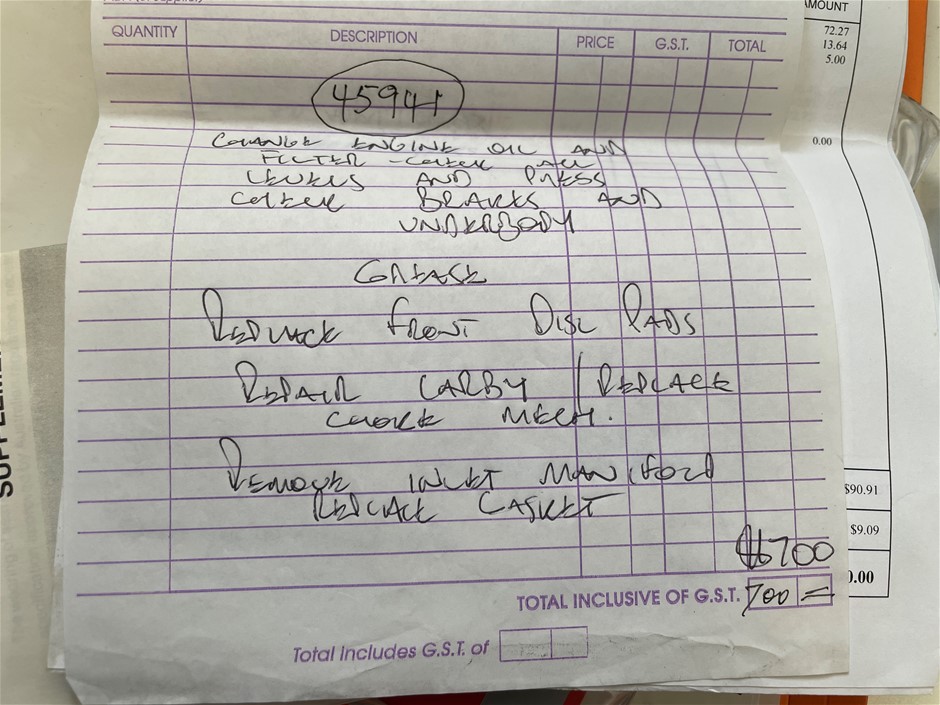 AMOUNT
72.27
13.64
5.00
0.00
$90.91
$9.09
0.00
QUANTITY DESCRIPTION PRICE G.S.T. TOTAL
45941
CHANGE ENGINE OIL AND
FILTER - CHECK ALL
LEVELS AND PRESS
CHECK BRAKES AND
UNDERBODY
GREASE
REPLACE FRONT DISC PADS
REPAIR CARBY / REPLACE
CHOKE MECH.
REMOVE INLET MANIFOLD
REPLACE GASKET
$700
TOTAL INCLUSIVE OF G.S.T. 700 =
Total Includes G.S.T. of